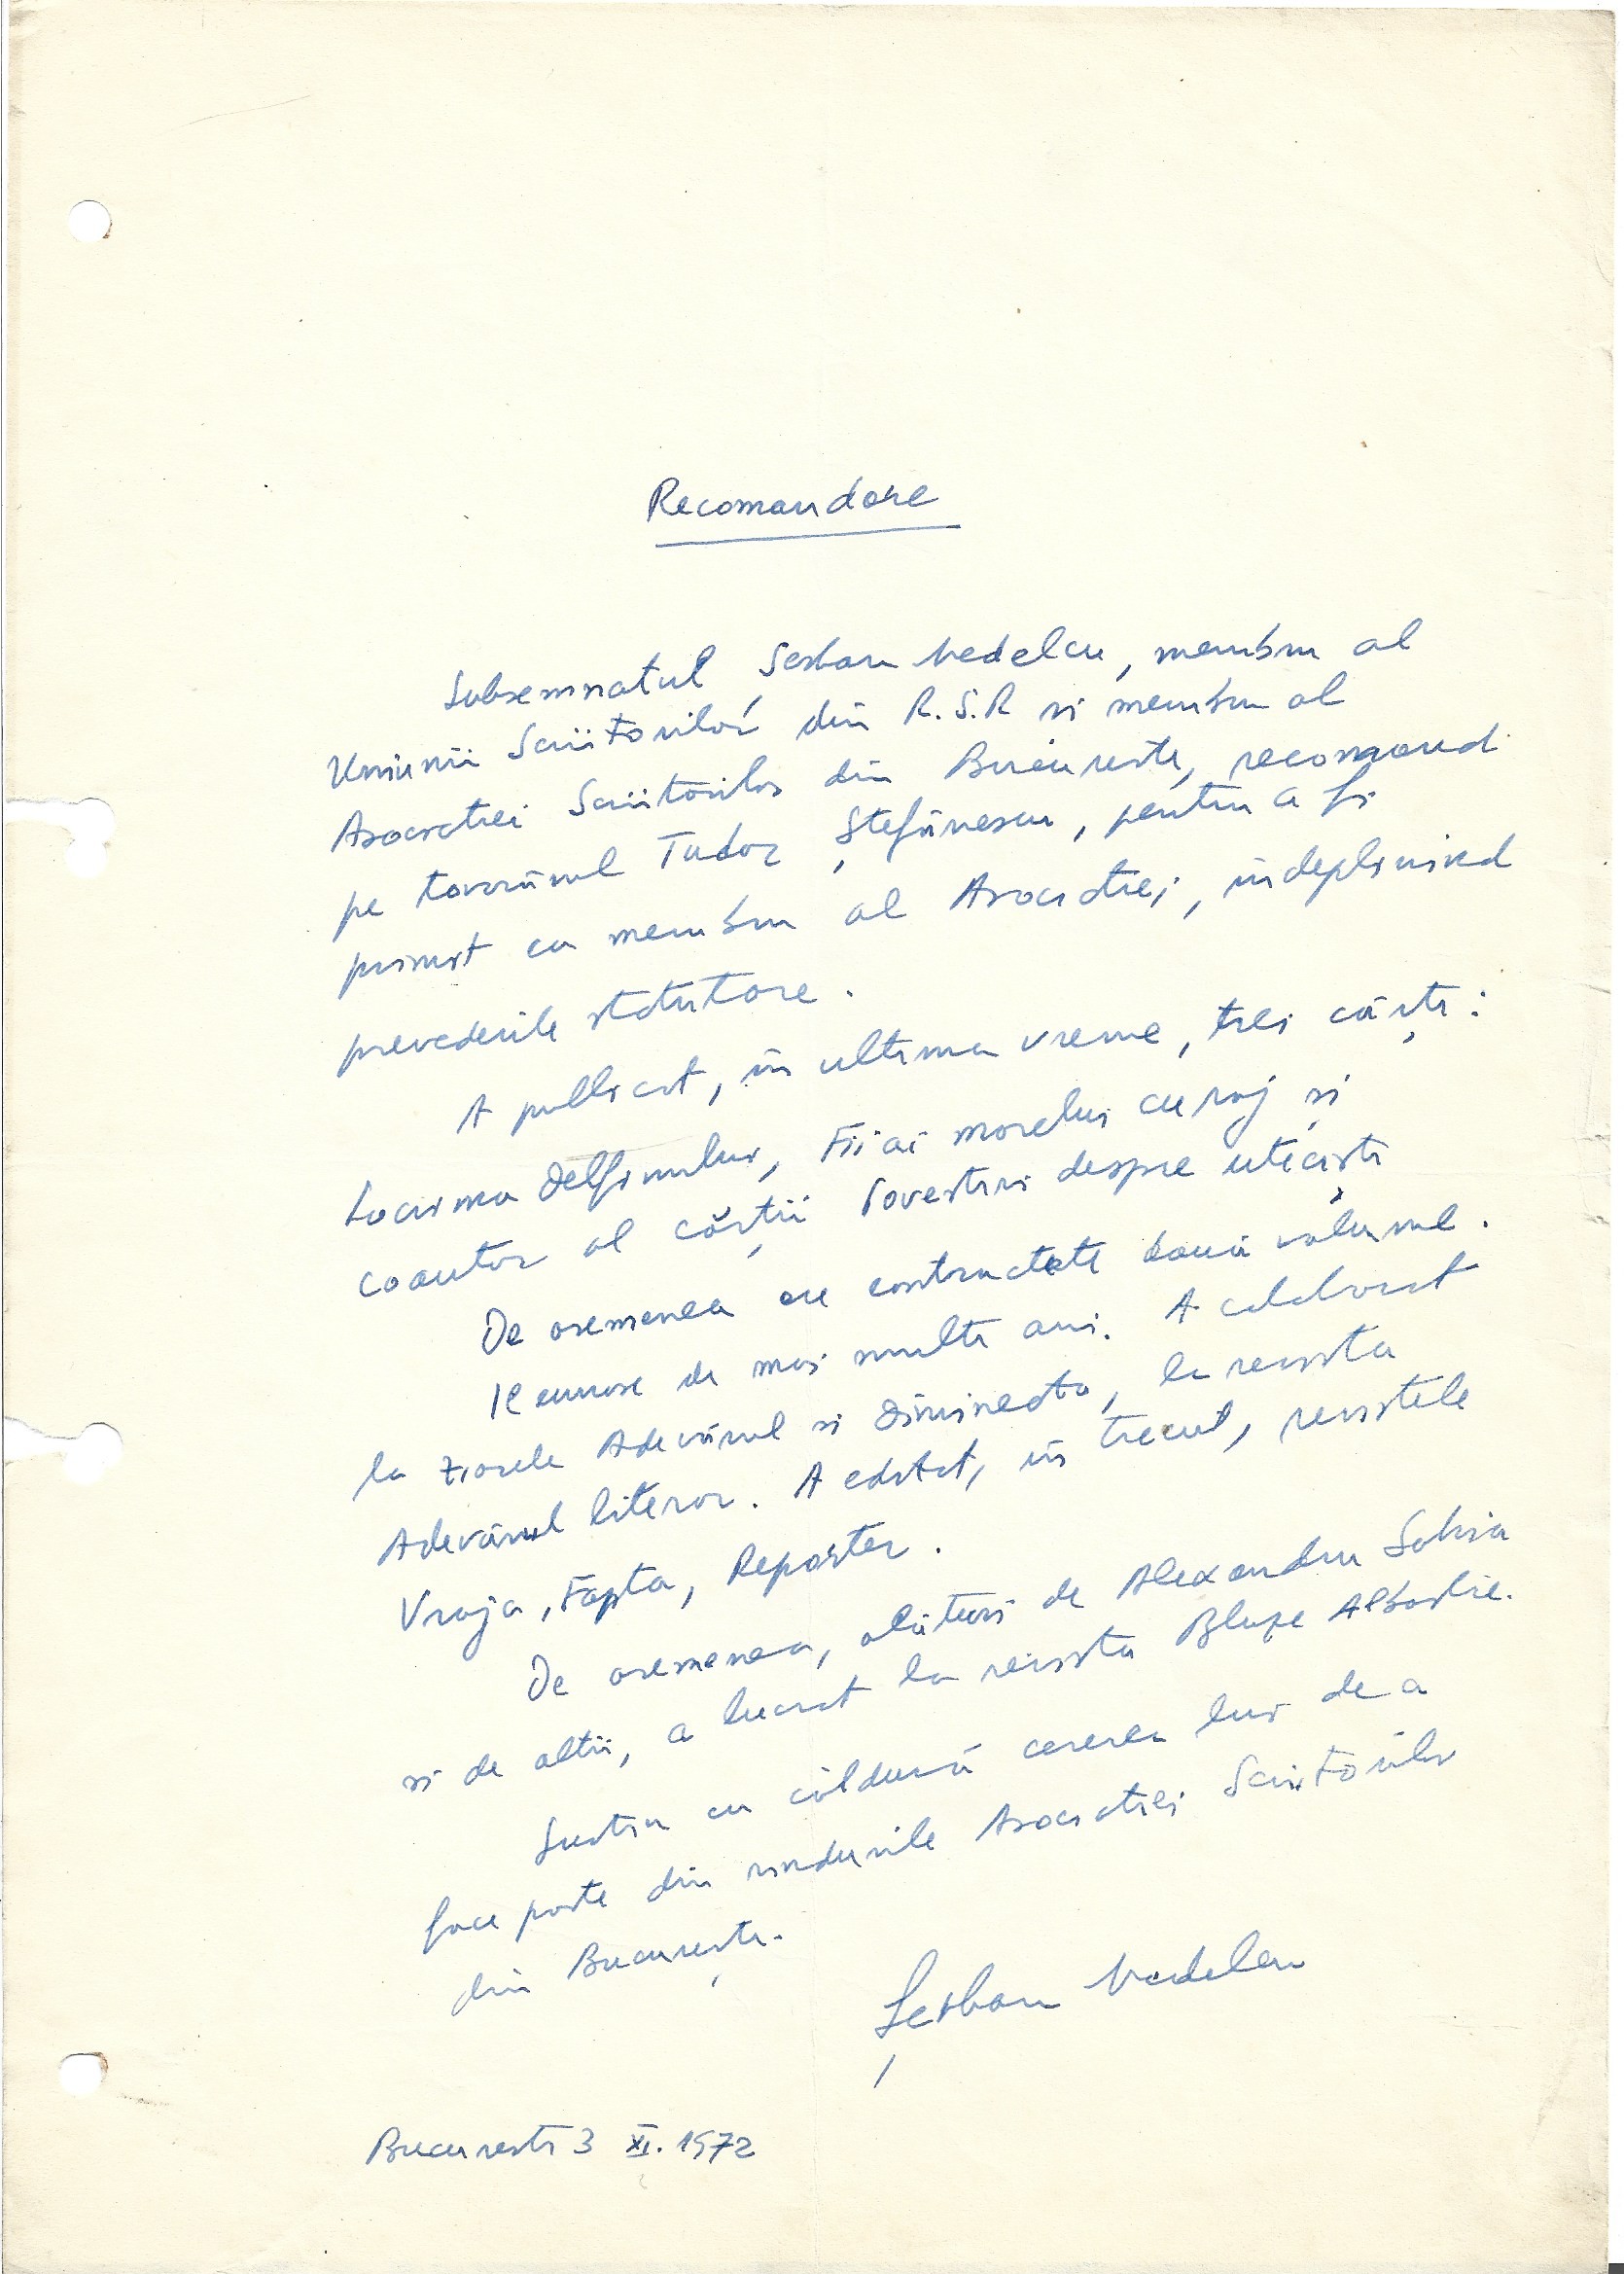 Recomandare
Subsemnatul Șerban Nedelcu, membru al
Uniunii Scriitorilor din R.S.R si membru al
Asociatiei Scriitorilor din Bucuresti, recomand
pe tovarăsul Tudor Ștefănescu, pentru a fi
primit ca membru al Asociatiei, indeplinind
prevederile statutare.
A publicat, în ultima vreme, trei cărți:
Lacrima Delfinului, Fii ai marelui curaj și
coautor al cărții Povestiri despre uteciști
De asemenea are contractate două volume.
Il cunosc de mai multi ani. A colaborat
la ziarele Adevărul si Dimineata, la revista
Adevărul literar. A editat, în trecut, revistele
Vraja, Fapta, Reporter.
De asemenea, alături de Alexandru Sahia
si de altii, a lucrat la revista Bluze Albastre.
Sustin cu căldură cererea lui de a
face parte din rindurile Asociatiei Scriitorilor
din București.
Șerban Nedelcu
Bucuresti 3 XI. 1972